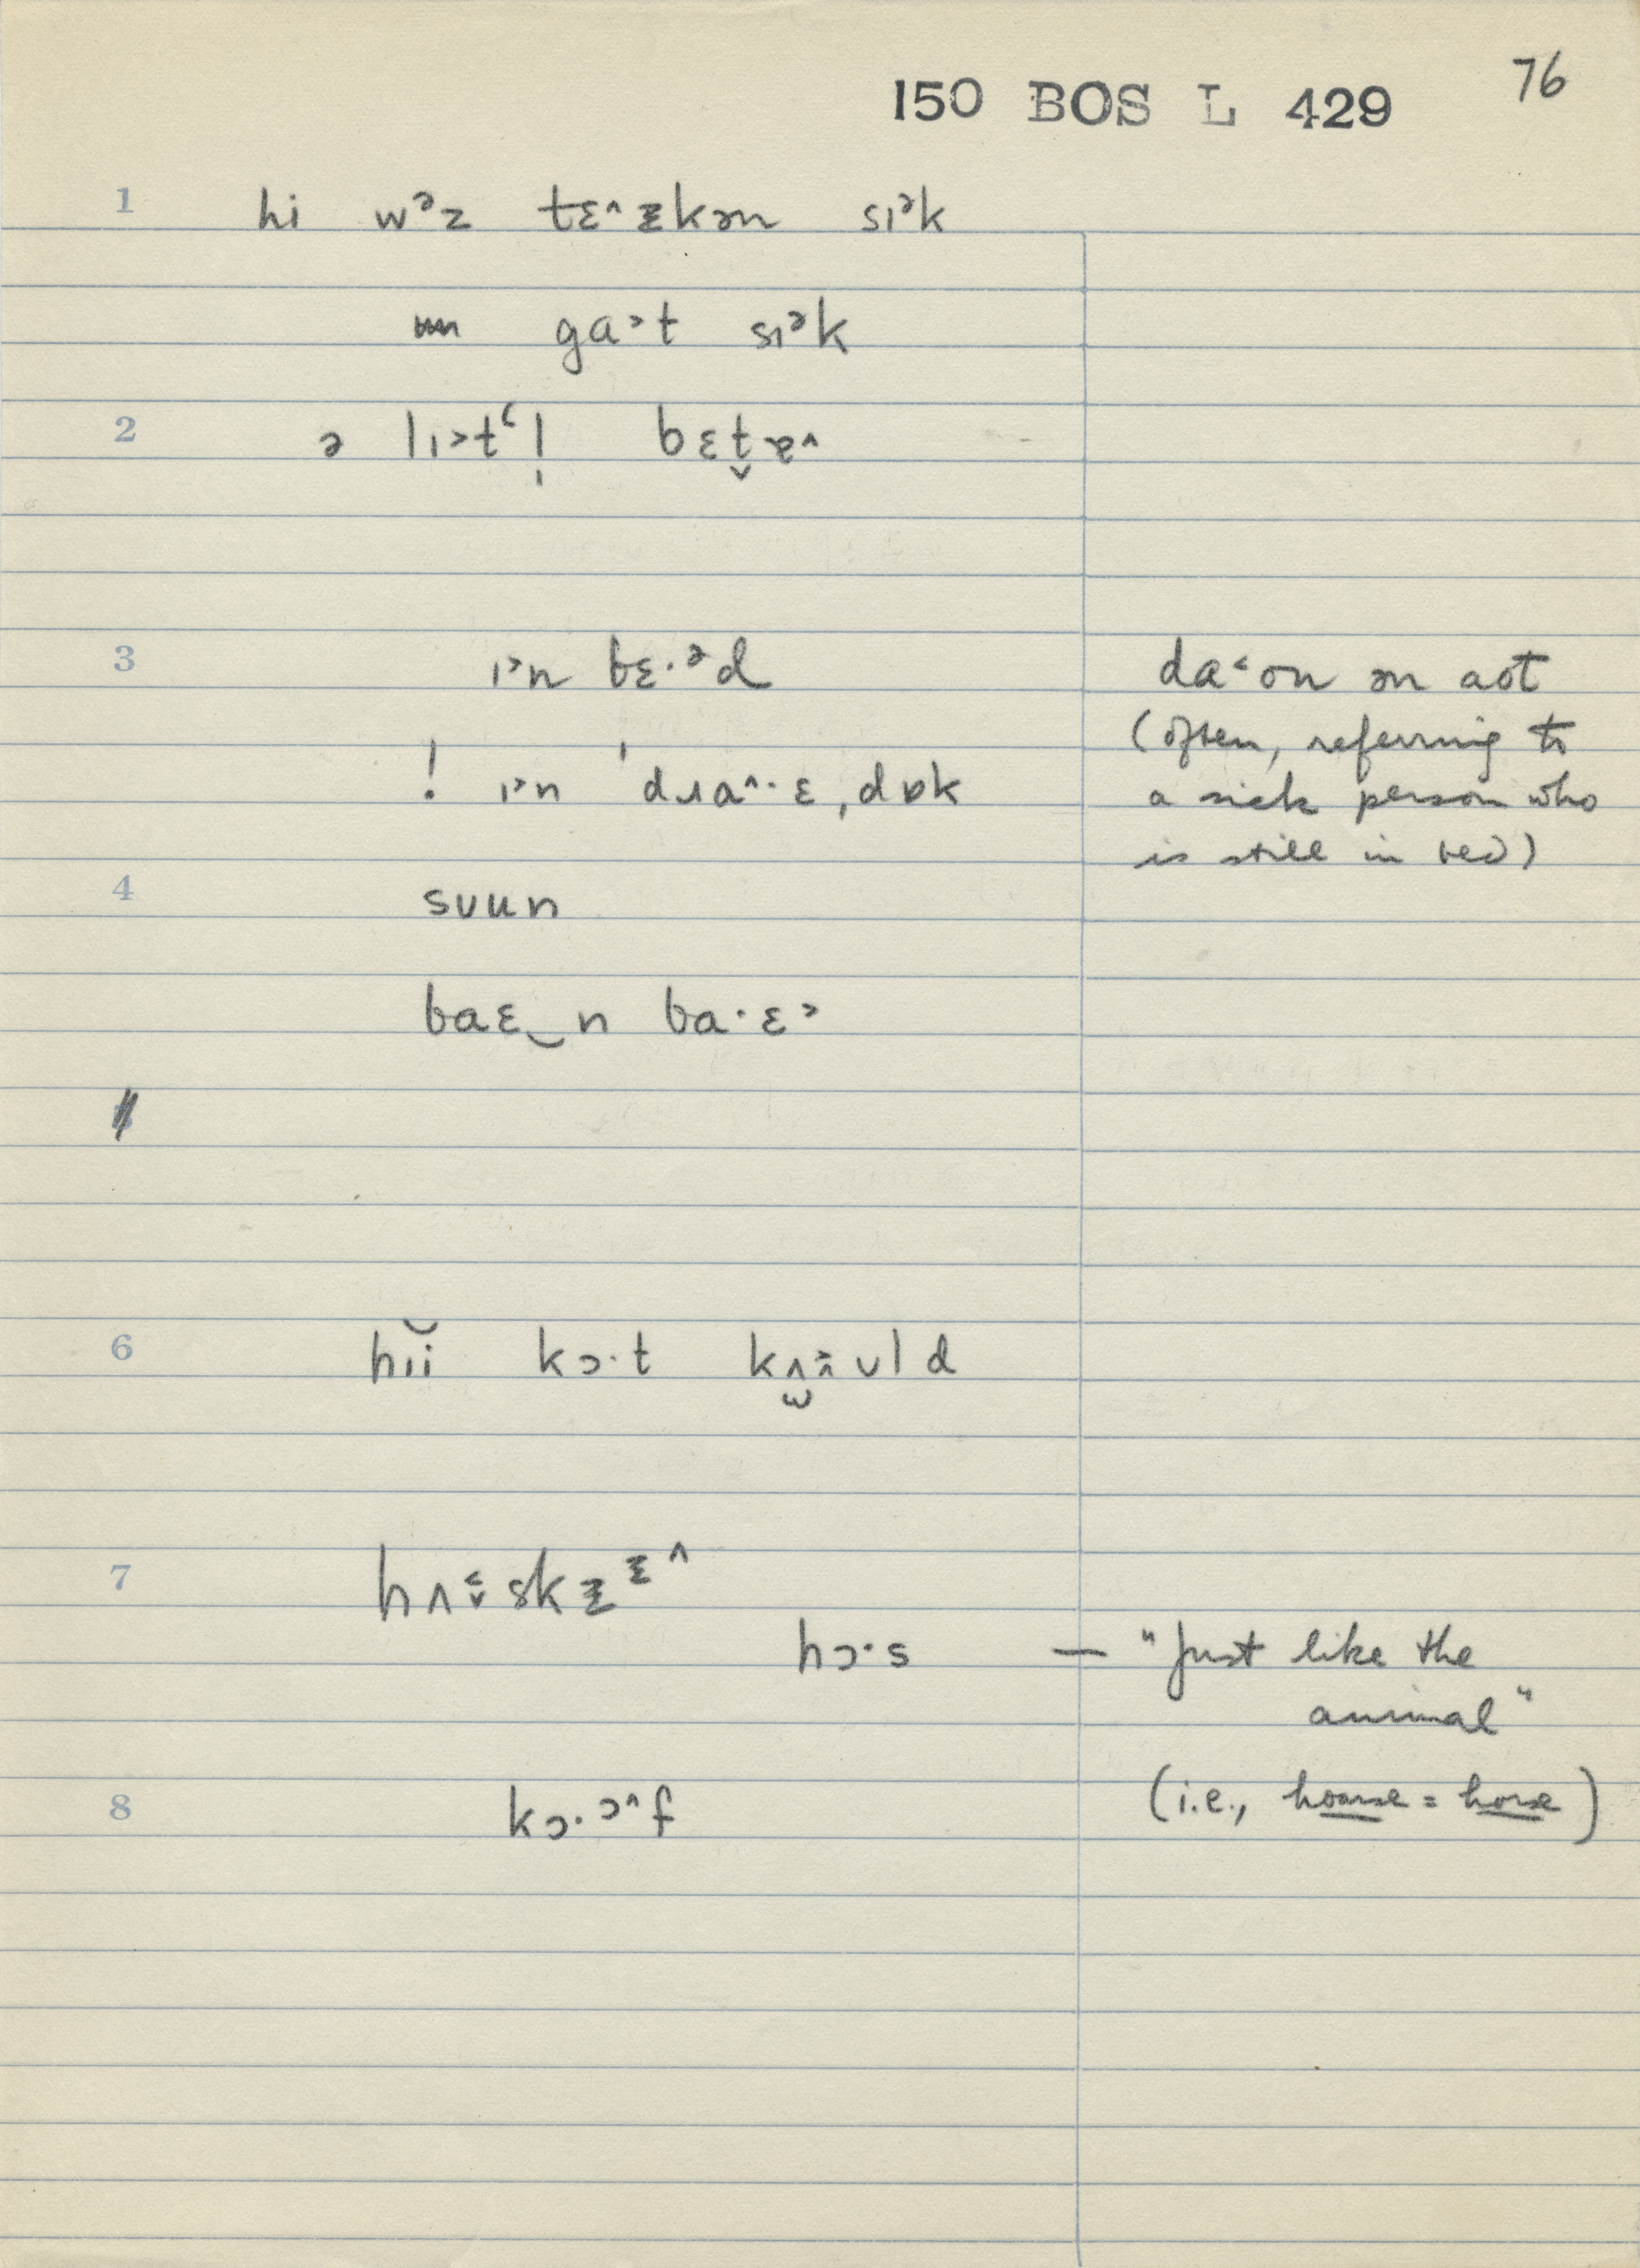 150 BOS L 429 76
1 hi wᵊz tɛ^ɪkən sɪᵊk
ga˃t sɪᵊk
2 ə lɪ˃tʻl̩ bɛt̬ɐ^
3 ɪ˃n bɛ·ᵊd da˂ʊn ən aʊt
(often, referring to
! ɪ˃n ˈdɹa^·ɛˌdɒk a sick person who
is still in bed)
4 suun
baɛ‿n ba·ɛ˃
6 hɪĭ kɔ·t
7
hɔ·s — "Just like the
animal"
8 kɔ·ɔ^f (i.e., hoarse = horse)